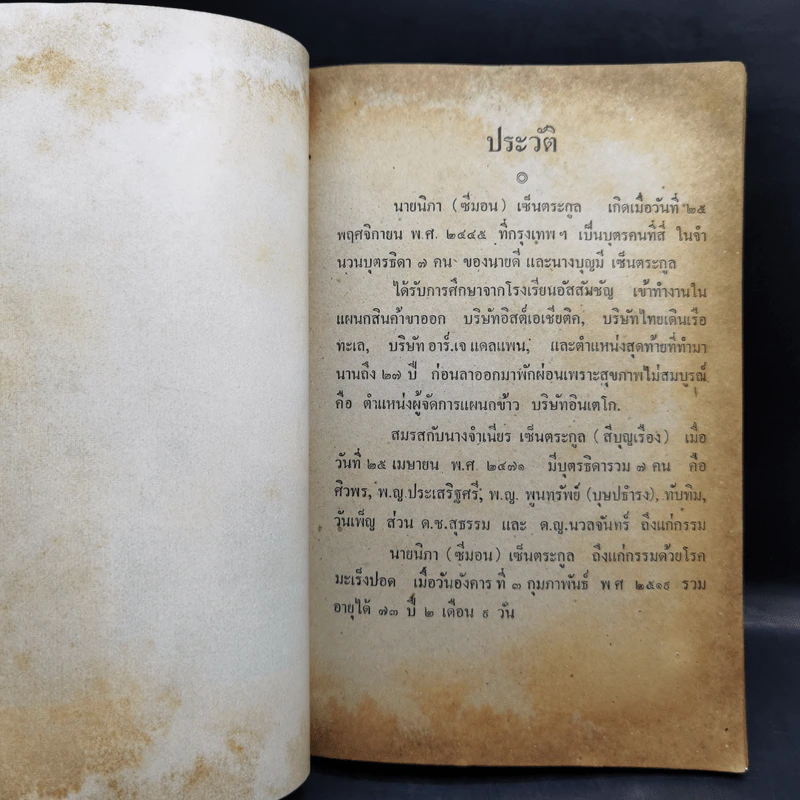 ประวัติ
นายนิภา (ซีมอน) เซ็นตระกูล เกิดเมื่อวันที่ ๒๕
พฤศจิกายน พ.ศ. ๒๔๔๕ ที่กรุงเทพฯ เป็นบุตรคนที่สี่ ในจำ
นวนบุตรธิดา ๗ คน ของนายดี และนางบุญมี เซ็นตระกูล
ได้รับการศึกษาจากโรงเรียนอัสสัมชัญ เข้าทำงานใน
แผนกสินค้าขาออก บริษัทอิสต์เอเชียติค, บริษัทไทยเดินเรือ
ทะเล, บริษัท อาร์.เจ แคลแพน, และตำแหน่งสุดท้ายที่ทำมา
นานถึง ๒๗ ปี ก่อนลาออกมาพักผ่อนเพราะสุขภาพไม่สมบูรณ์
คือ ตำแหน่งผู้จัดการแผนกข้าว บริษัทอินเตโก.
สมรสกับนางจำเนียร เซ็นตระกูล (สีบุญเรือง) เมื่อ
วันที่ ๒๕ เมษายน พ.ศ. ๒๔๗๑ มีบุตรธิดารวม ๗ คน คือ
ศิวพร, พ.ญ.ประเสริฐศรี, พ.ญ. พูนทรัพย์ (บุษปธำรง), ทับทิม,
วันเพ็ญ ส่วน ด.ช.สุธรรม และ ด.ญ.นวลจันทร์ ถึงแก่กรรม
นายนิภา (ซีมอน) เซ็นตระกูล ถึงแก่กรรมด้วยโรค
มะเร็งปอด เมื่อวันอังคาร ที่ ๓ กุมภาพันธ์ พ ศ ๒๕๑๙ รวม
อายุได้ ๗๓ ปี ๒ เดือน ๙ วัน